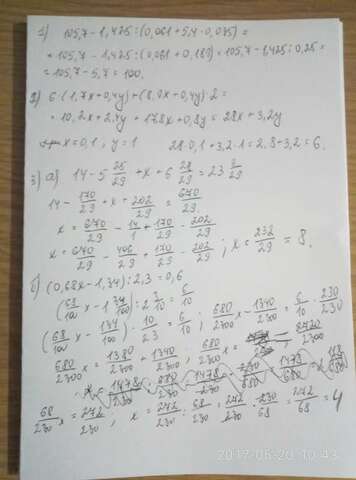 1) 105,7 - 1,425 : (0,061 + 5,4 · 0,035) =
= 105,7 - 1,425 : (0,061 + 0,189) = 105,7 - 1,425 : 0,25 =
= 105,7 - 5,7 = 100.
2) 6 · (1,7x + 0,4y) + (8,9x + 0,4y) · 2 =
= 10,2x + 2,4y + 17,8x + 0,8y = 28x + 3,2y
при x = 0,1, y = 1 28 · 0,1 + 3,2 · 1 = 2,8 + 3,2 = 6.
3) а) 14 - 5 25/29 + x + 6 28/29 = 23 3/29
14 - 170/29 + x + 202/29 = 670/29
x = 670/29 - 14/1 + 170/29 - 202/29
x = 670/29 - 406/29 + 170/29 - 202/29 ; x = 232/29 = 8.
б) (0,68x - 1,34) : 2,3 = 0,6
(68/100 x - 1 34/100) : 2 3/10 = 6/10
(68/100 x - 134/100) · 10/23 = 6/10 ; 680/2300 x - 1340/2300 = 6/10 · 230/230
680/2300 x = 1380/2300 + 1340/2300 ; 680/2300 x = 2720/2300
68/230 x = 272/230 , x = 272/230 : 68/230 = 272/230 · 230/68 = 272/68 = 4
2017-06-20 10:43